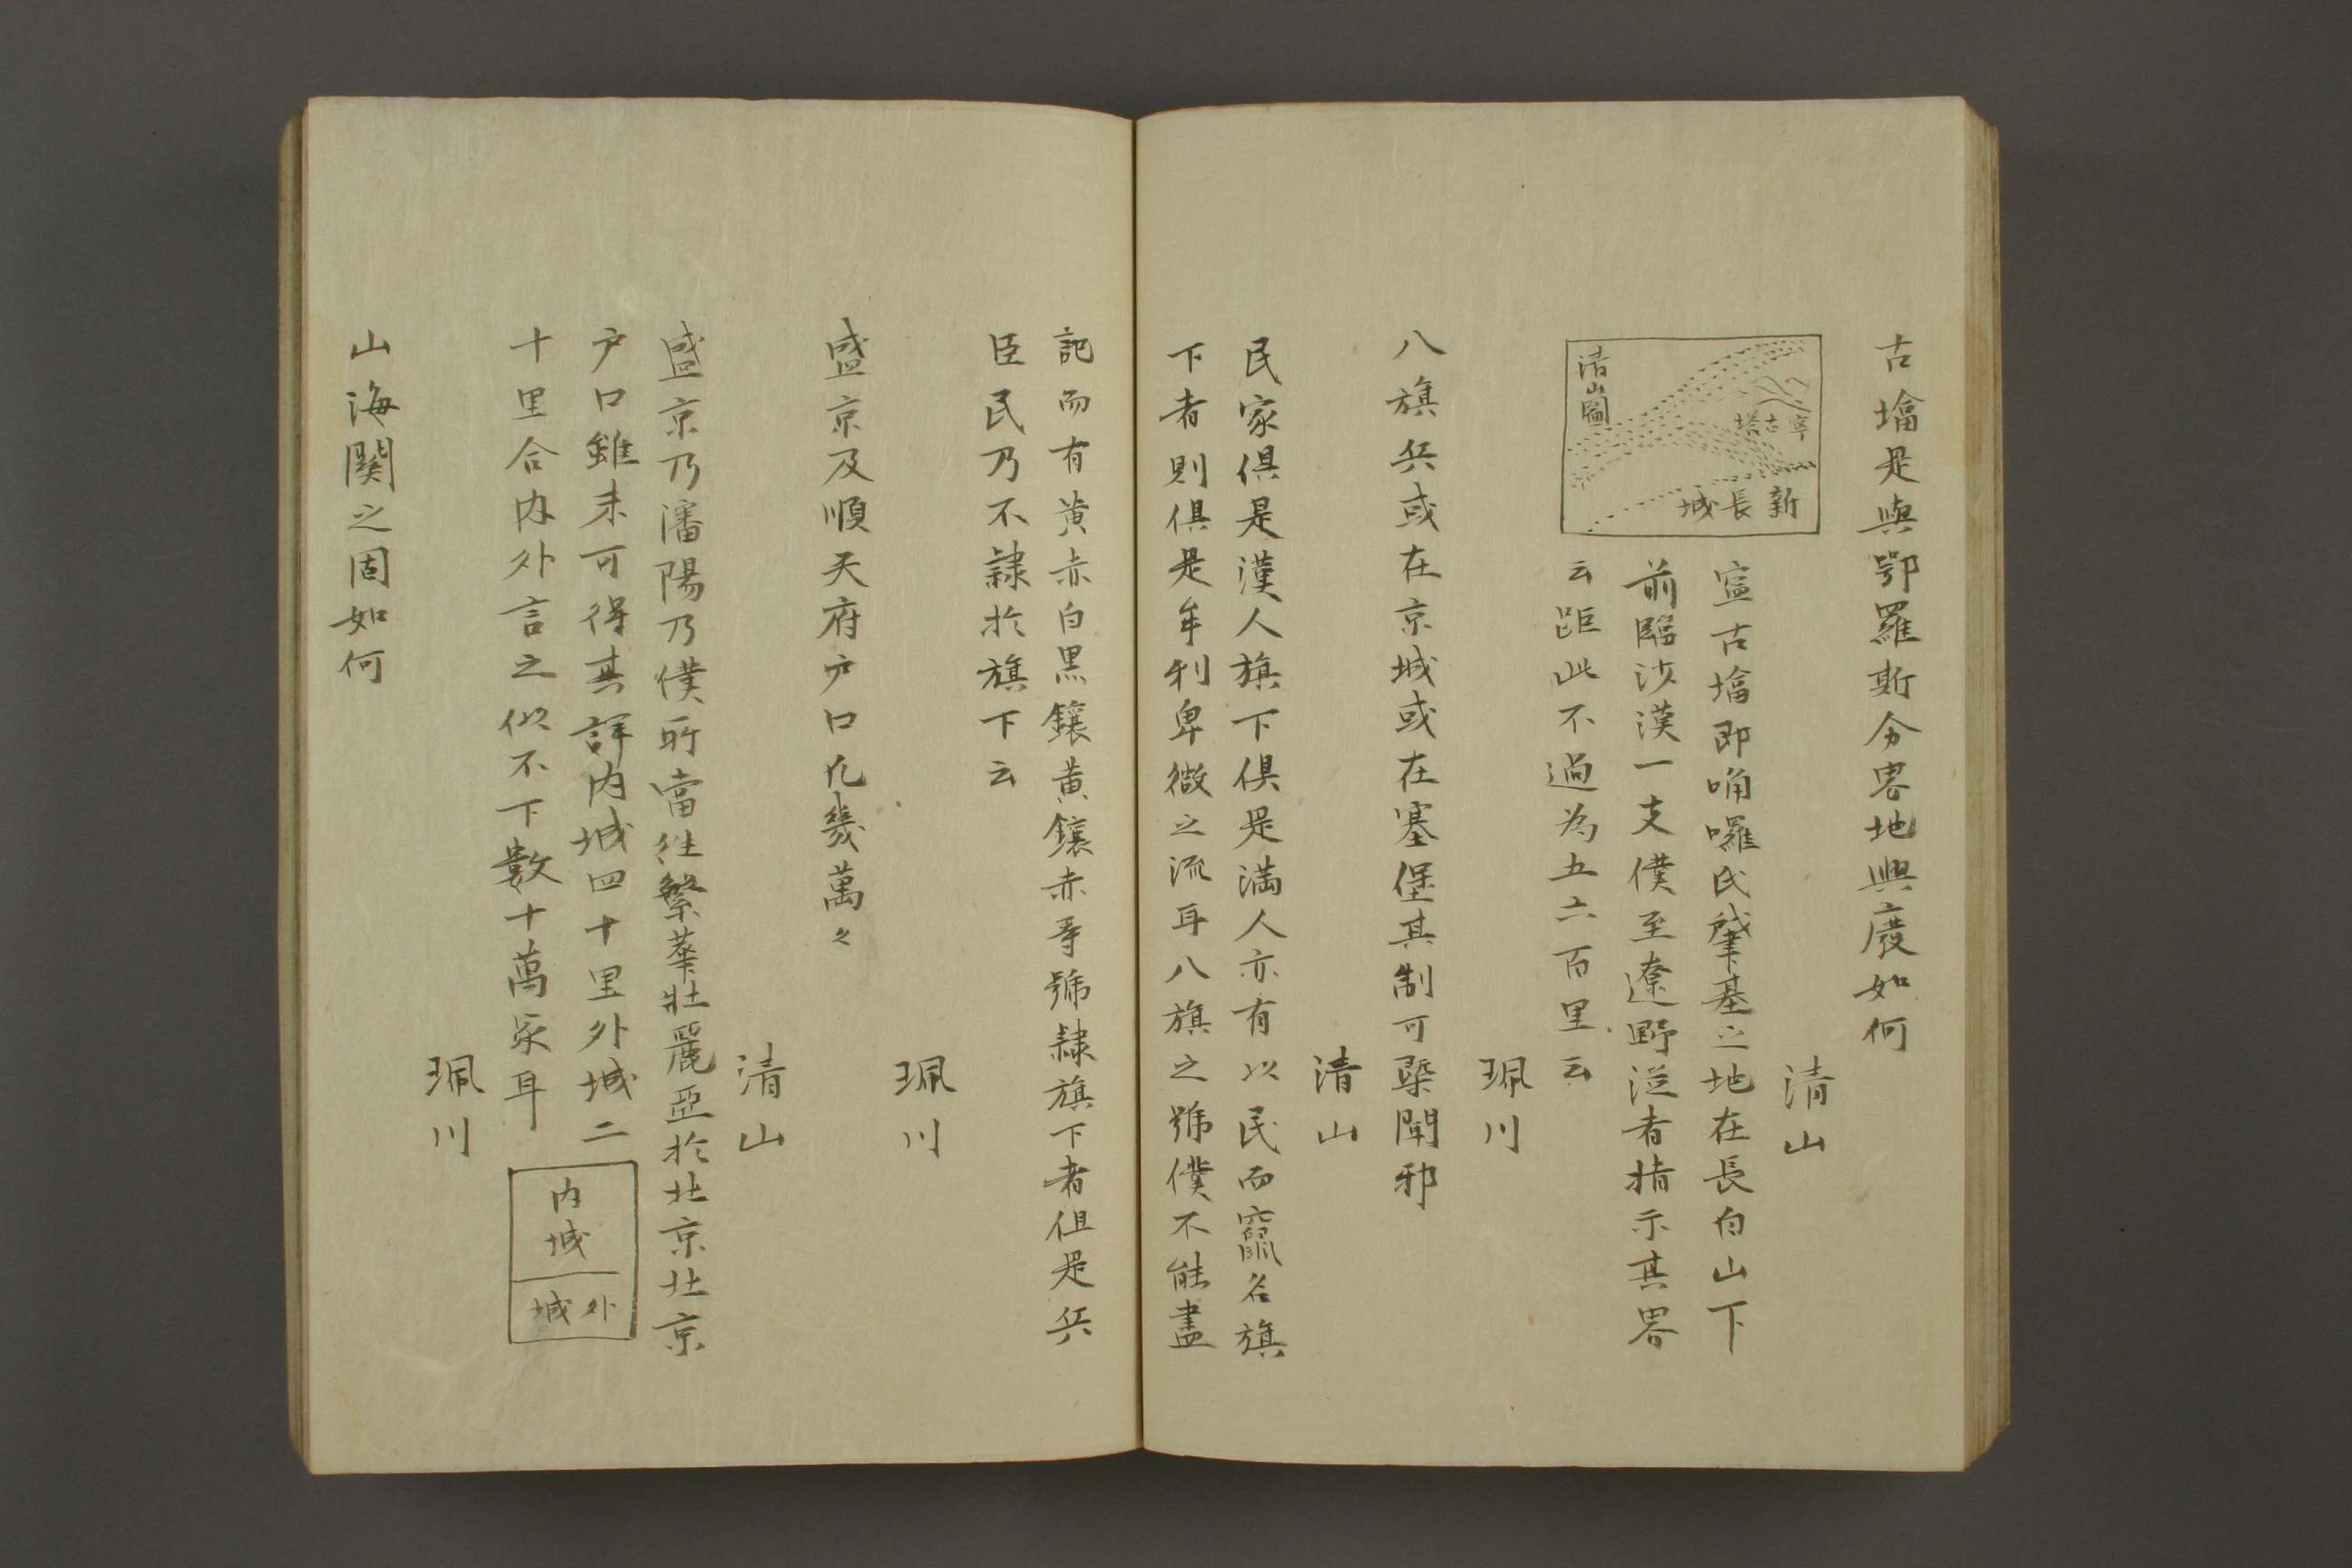 古㙮是與鄂羅斯分界地與廢如何
清山
寧古㙮即唃囉氏肇基之地在長白山下
前臨沙漠一支僕至遼野從者指示其界
云距此不過為五六百里云
清山圖
寧古塔
新長城
珮川
八旗兵或在京城或在塞堡其制可槩聞邪
清山
民家俱是漢人旗下俱是満人亦有以民而竄名旗
下者則俱是牟利卑微之流耳八旗之號僕不能盡
記而有黄赤白黒鑲黄鑲赤等號隷旗下者但是兵
臣民乃不隷於旗下云
珮川
盛京及順天府户口凢幾萬々
清山
盛京乃瀋陽乃僕所嘗徃繁華壯麗亞於北京北京
户口雖未可得其詳内城四十里外城二
十里合内外言之似不下數十萬家耳
内城
外城
珮川
山海関之固如何